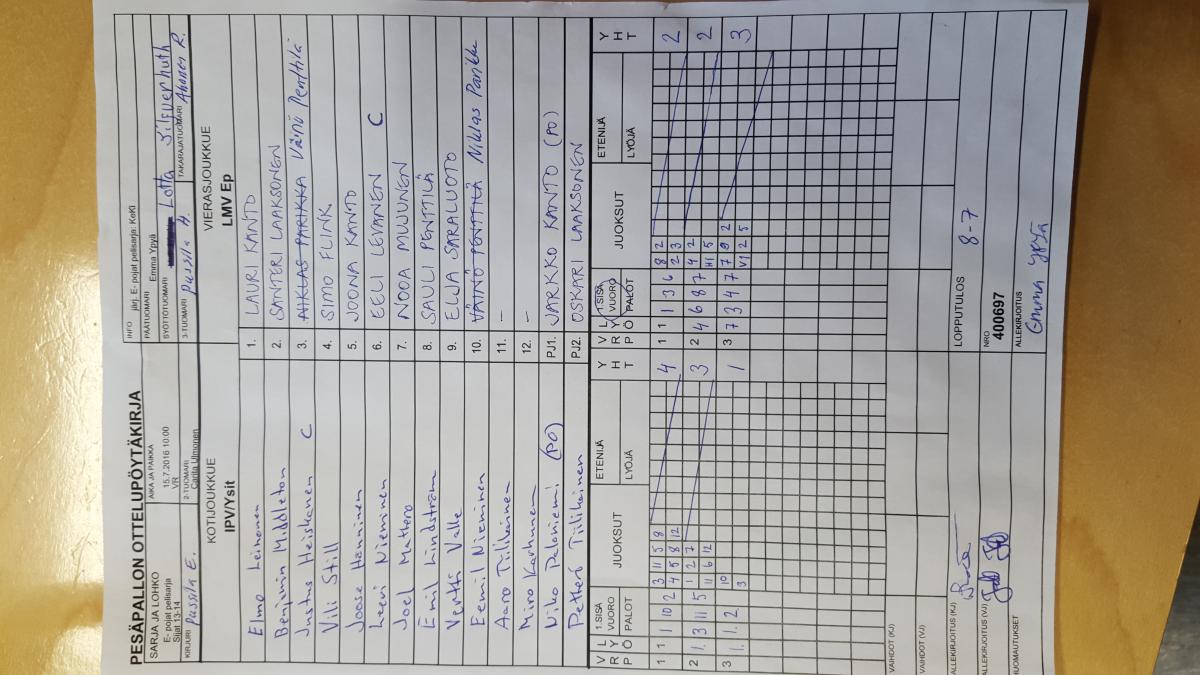 PESÄPALLON OTTELUPÖYTÄKIRJA
INFO järj. E- pojat pelisarja: KeKi
SARJA JA LOHKO
E- pojat pelisarja
Sijat 13-14
AIKA JA PAIKKA
15.7.2016 10:00
VR
PÄÄTUOMARI Emma Ypyä
SYÖTTÖTUOMARI Lotta Silfverhuth
KIRJURI Pussila E.
2-TUOMARI
Carilla Ulmonen
3-TUOMARI Pussila A.
TAKARAJATUOMARI Ahonen R.
KOTIJOUKKUE
IPV/Ysit
VIERASJOUKKUE
LMV Ep
Elmo Leinonen 1. LAURI KANTO
Benjamin Middleton 2. SANTERI LAAKSONEN
Justus Heiskanen C 3. NIKLAS PARIKKA Väinö Penttilä
Vili Still 4. SIMO FLINK
Joose Hänninen 5. JOONA KANTO
Leevi Nieminen 6. EELI LEVANEN C
Joel Mattero 7. NOOA MUJUNEN
Emil Lindström 8. SAULI PENTTILÄ
Vertti Valle 9. ELJA SARALUOTO
Eemil Nieminen 10. VÄINÖ PENTTILÄ Niklas Parikka
Aaro Tiilikainen 11. -
Miro Karhunen 12. -
Niko Paloniemi (PO) PJ1. JARKKO KANTO (PO)
Petteri Tiilikainen PJ2. OSKARI LAAKSONEN
V R P L Y Ö 1.SISÄ VUORO PALOT JUOKSUT ETENIJÄ LYÖJÄ Y H T
V R P L Y Ö 1.SISÄ VUORO PALOT JUOKSUT ETENIJÄ LYÖJÄ Y H T
1 1 1 10 2 3 11 5 8 4
4 5 8 12
1 1 1 3 6 8 2 2
2 3
2 1. 3 11 5 1 2 7 3
11 6 12
2 4 6 8 7 4 2 2
H1 5
3 1. 1. 2 10 1
3
3 7 3 4 7 7 9 2 3
V1 2 5
VAIHDOT (KJ)
VAIHDOT (VJ)
ALLEKIRJOITUS (KJ)
LOPPUTULOS 8-7
ALLEKIRJOITUS (VJ)
NRO
400697
HUOMAUTUKSET
ALLEKIRJOITUS
Emma Ypyä